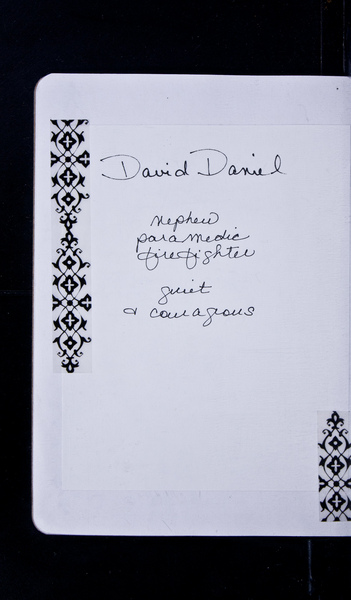 David Daniel
nephew
paramedic
firefighter
quiet
& courageous